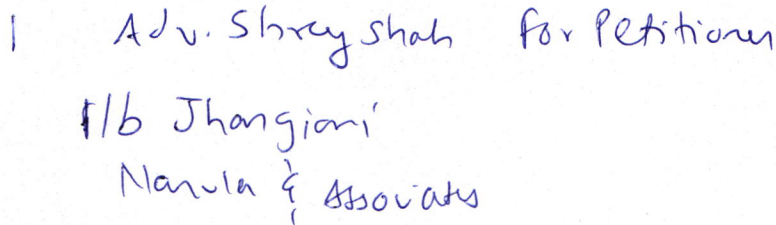 1 Adv. Shrey Shah for Petitioner
i/b Jhangiani
Narula & Associates